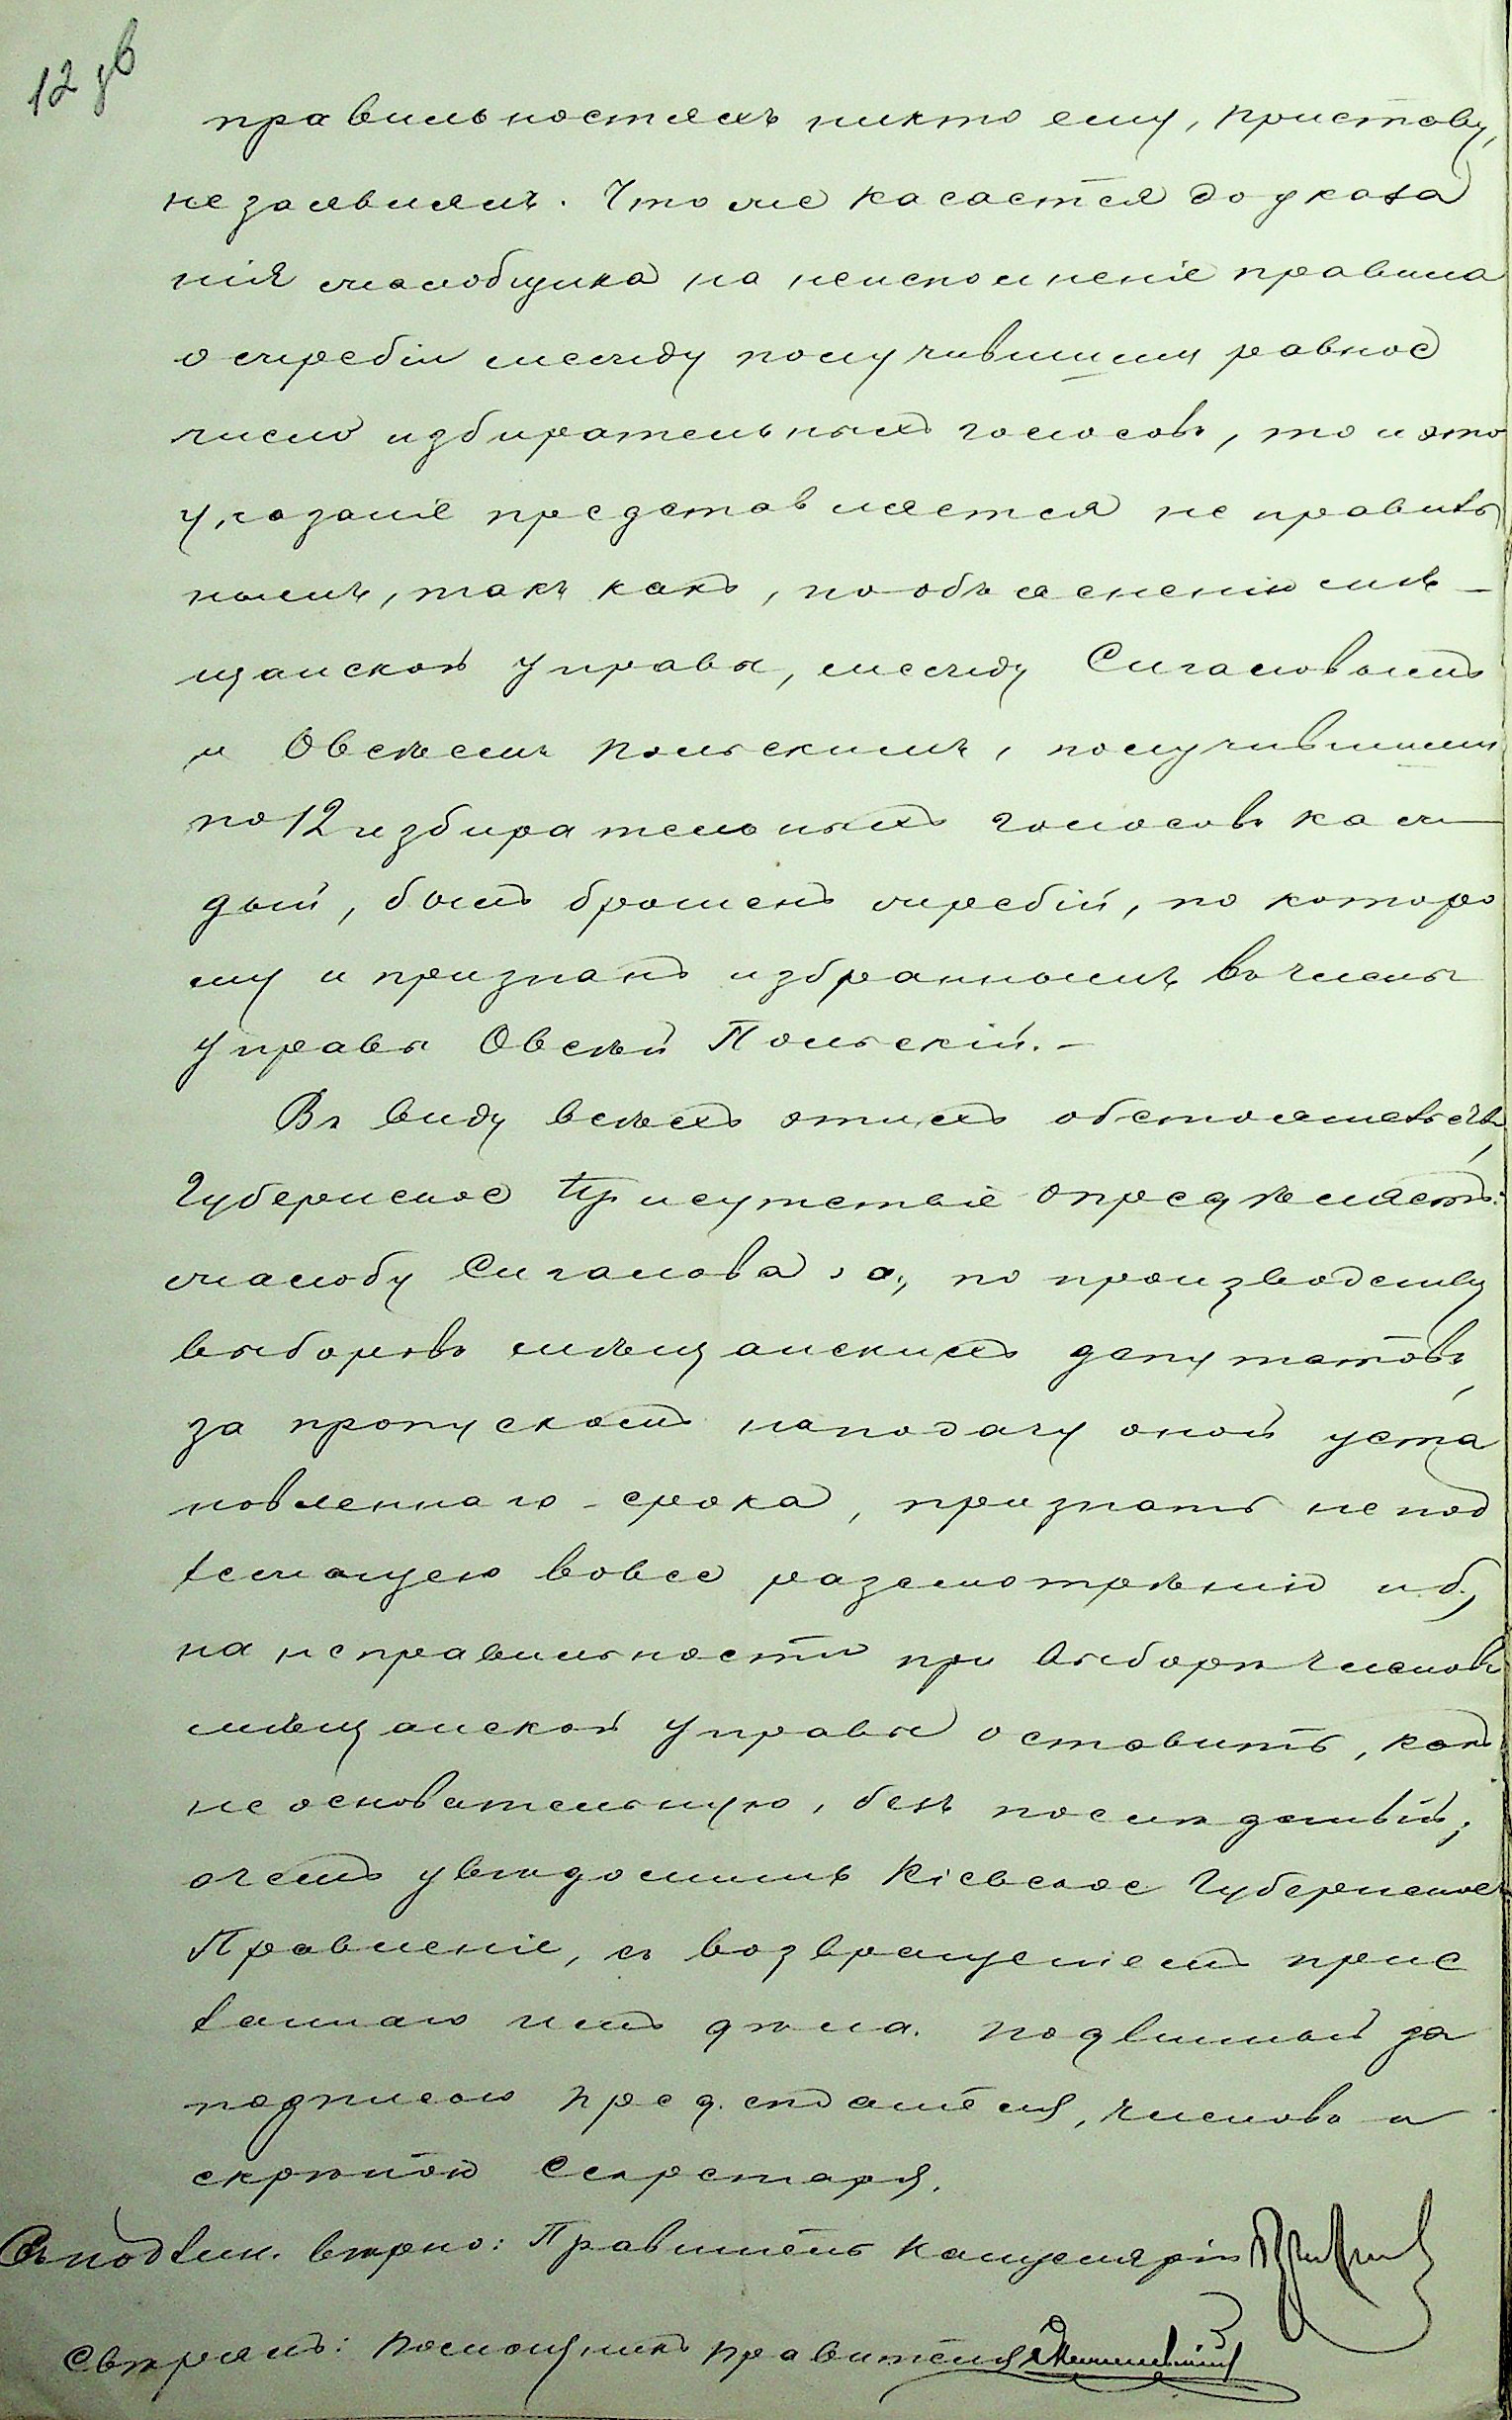 12 об
правильностяхъ никто ему, приставу,
не заявлялъ. Что же касается до указа
нія жалобщика на неисполненіе правила
о жребіи между получившими равное
число избирательныхъ голосовъ, то и это
указаніе представляется не правиль
нымъ, такъ какъ, по объясненію мѣ-
щанской управы, между Сигаловымъ
и Овсѣемъ Польскимъ, получившими
по 12 избирательныхъ голосовъ каж-
дый, былъ брошенъ жребій, по которо
му и признанъ избраннымъ въ члены
управы Овсѣй Польскій.-
Въ виду всѣхъ этихъ обстоятельствъ,
Губернское Присутствіе опредѣляетъ:
жалобу Сигалова: а, по производству
выборовъ мѣщанскихъ депутатовъ,
за пропускомъ на подачу оной уста
новленнаго срока, признать не под
лежащею вовсе разсмотрѣнію и б,
на неправильности при выборѣ членовъ
мѣщанской управы оставить, какъ
не основательную, безъ послѣдствій;
о чемъ увѣдомить Кіевское Губернское
Правленіе, съ возвращеніемъ прис
ланнаго имъ дѣла. Подлинный за
подписью предсѣдателя, членовъ и
скрѣпою Секретаря.
Съ подлин. вѣрно: Правитель Канцеляріи
Свѣрялъ: Помощникъ Правителя